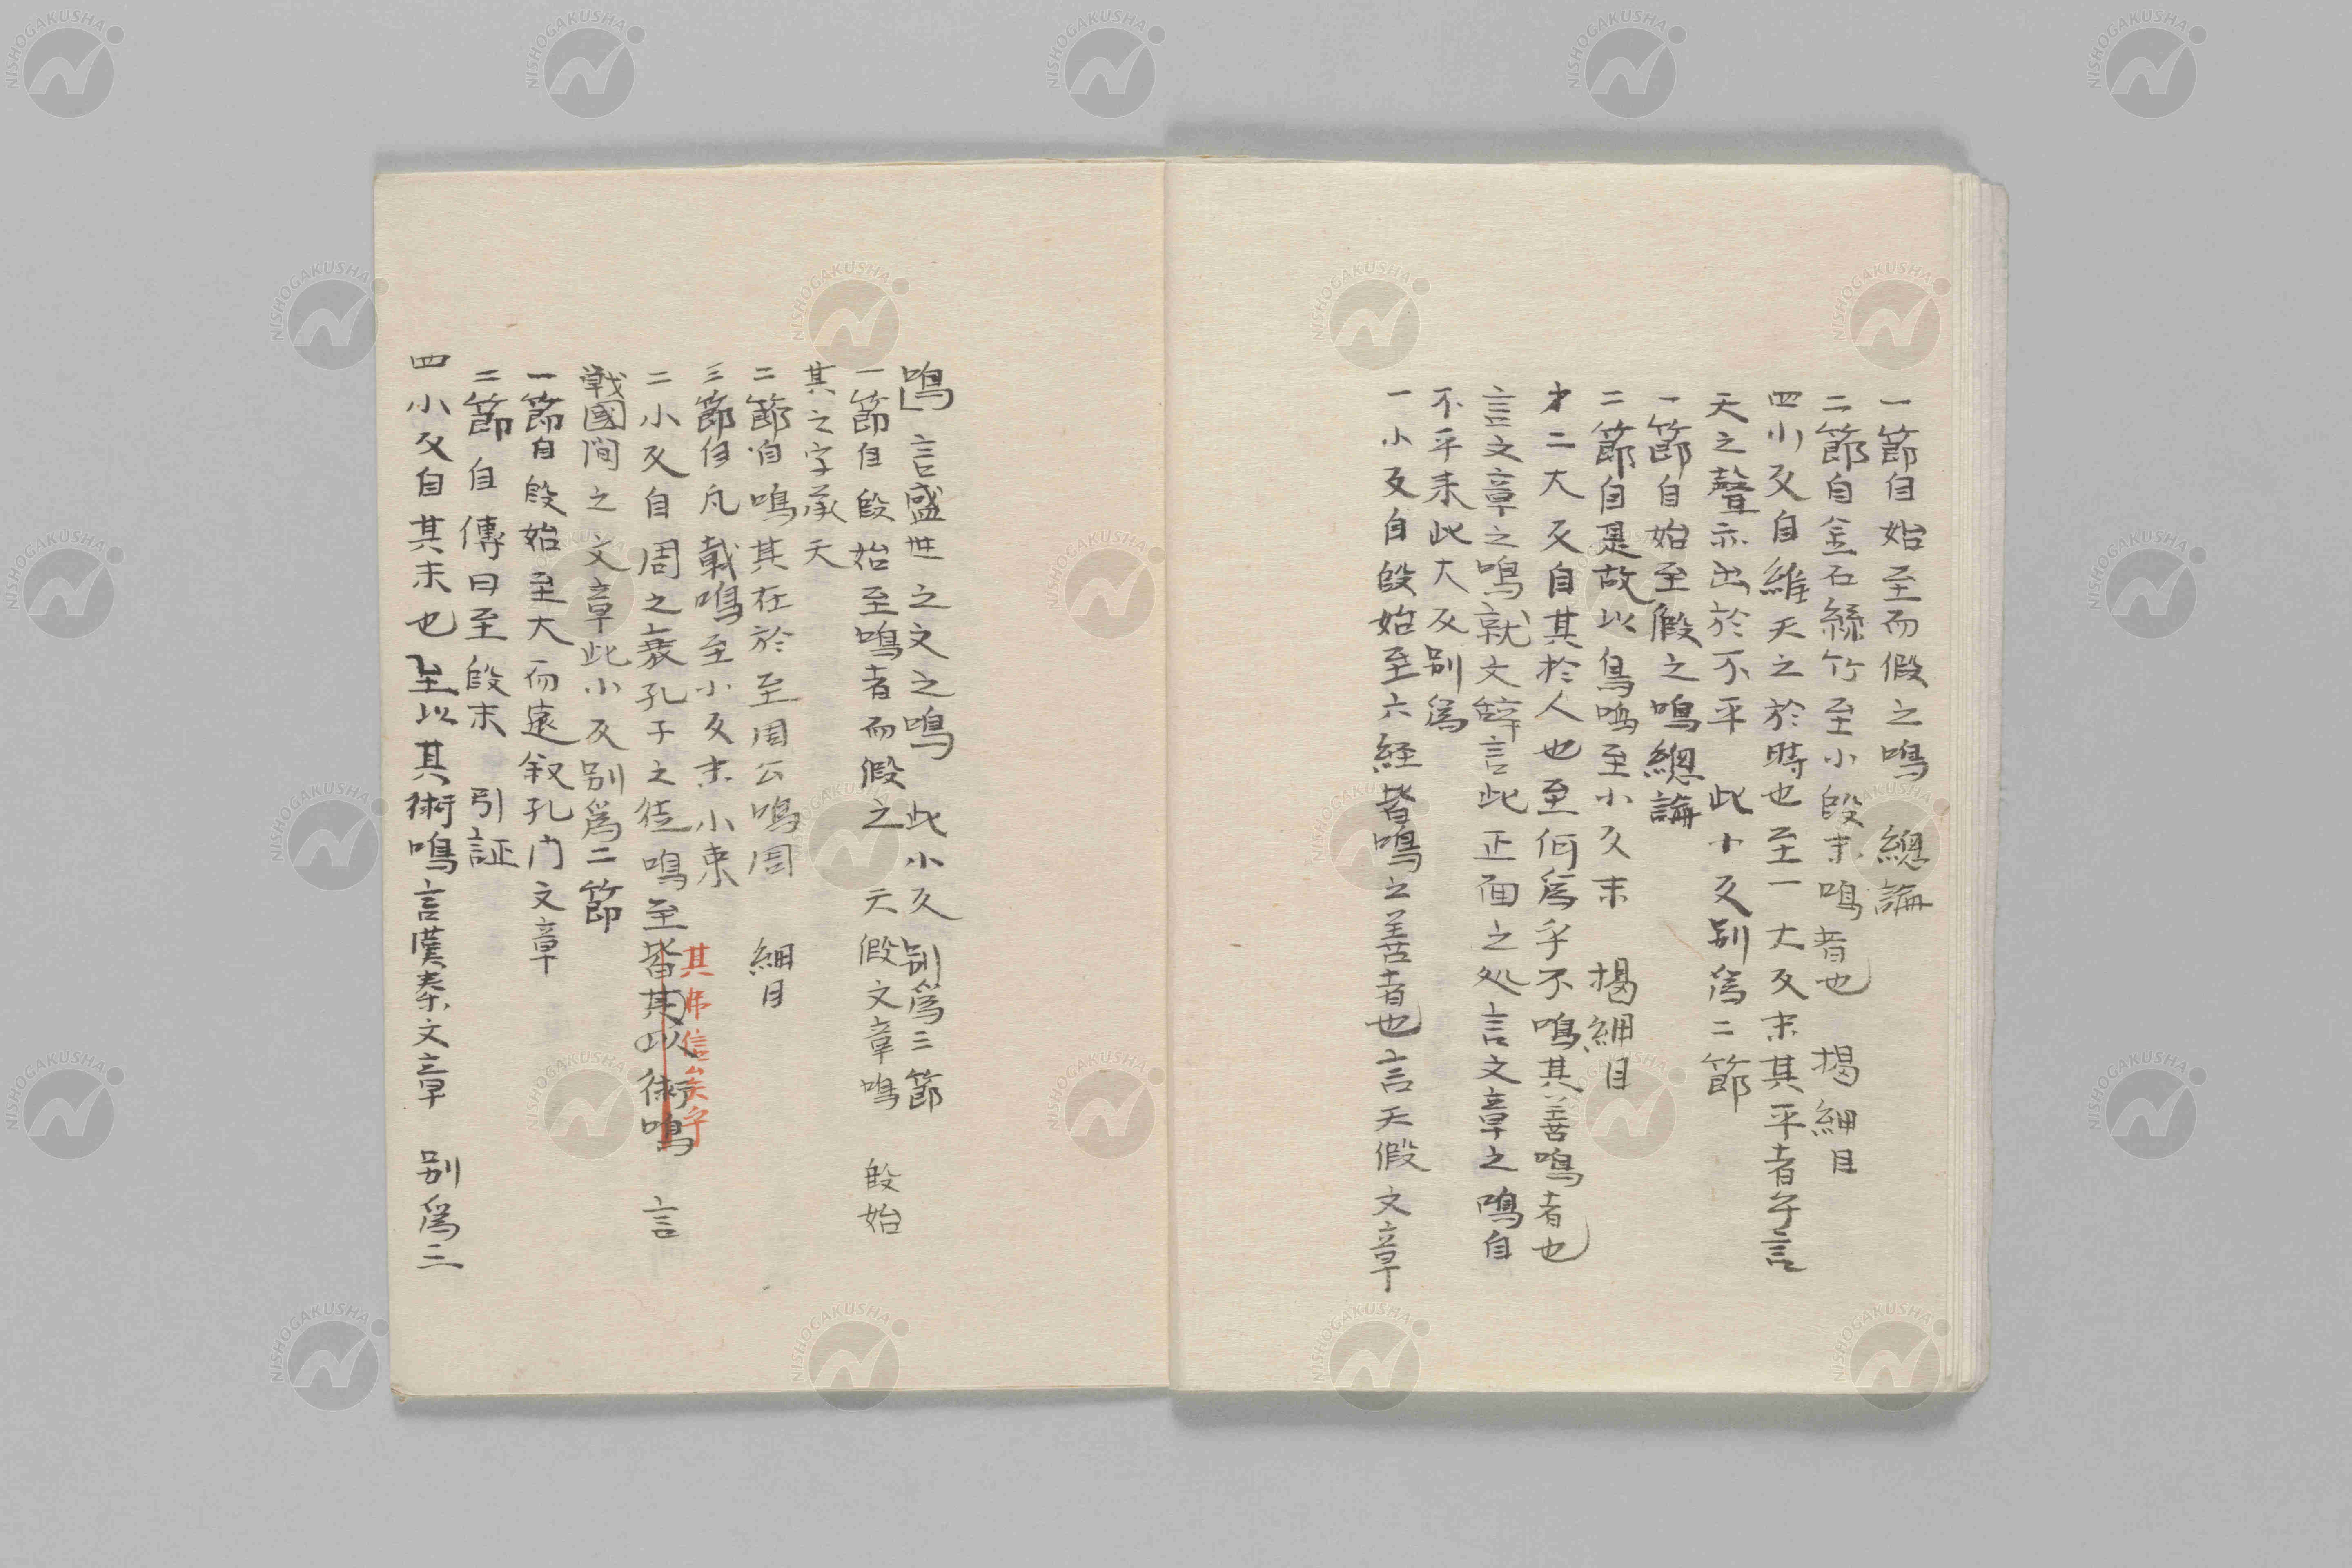 一節自始至而假之鳴　總論
二節自金石絲竹至小段末鳴者也　揭細目
四小叚自維天之於時也至一大叚末其平者乎言
天之聲亦出於不平　此小叚別爲二節
一節自始至假之鳴總論
二節自是故以鳥鳴至小叚末　揭細目
才二大叚自其於人也至何爲乎不鳴其善鳴者也
言文章之鳴就文辞言此正面之処言文章之鳴自
不平来此大叚別爲
一小叚自段始至六経皆鳴之善者也言天假文章
鳴」言盛世之文之鳴　此小叚別爲三節
一節自段始至鳴者而假之　天假文章鳴　段始
其之字承天
二節自鳴其在於至周公鳴周　細目
三節自凡載鳴至小叚末小束
二小叚自周之衰孔子之徒鳴至皆其以術鳴　言
其弗信矣乎
戦國間之文章此小叚別爲二節
一節自段始至大而遠叙孔门文章
二節自傳曰至段末　引証
四小叚自其末也至以其術鳴言漢秦文章　別爲三
NISHOGAKUSHA